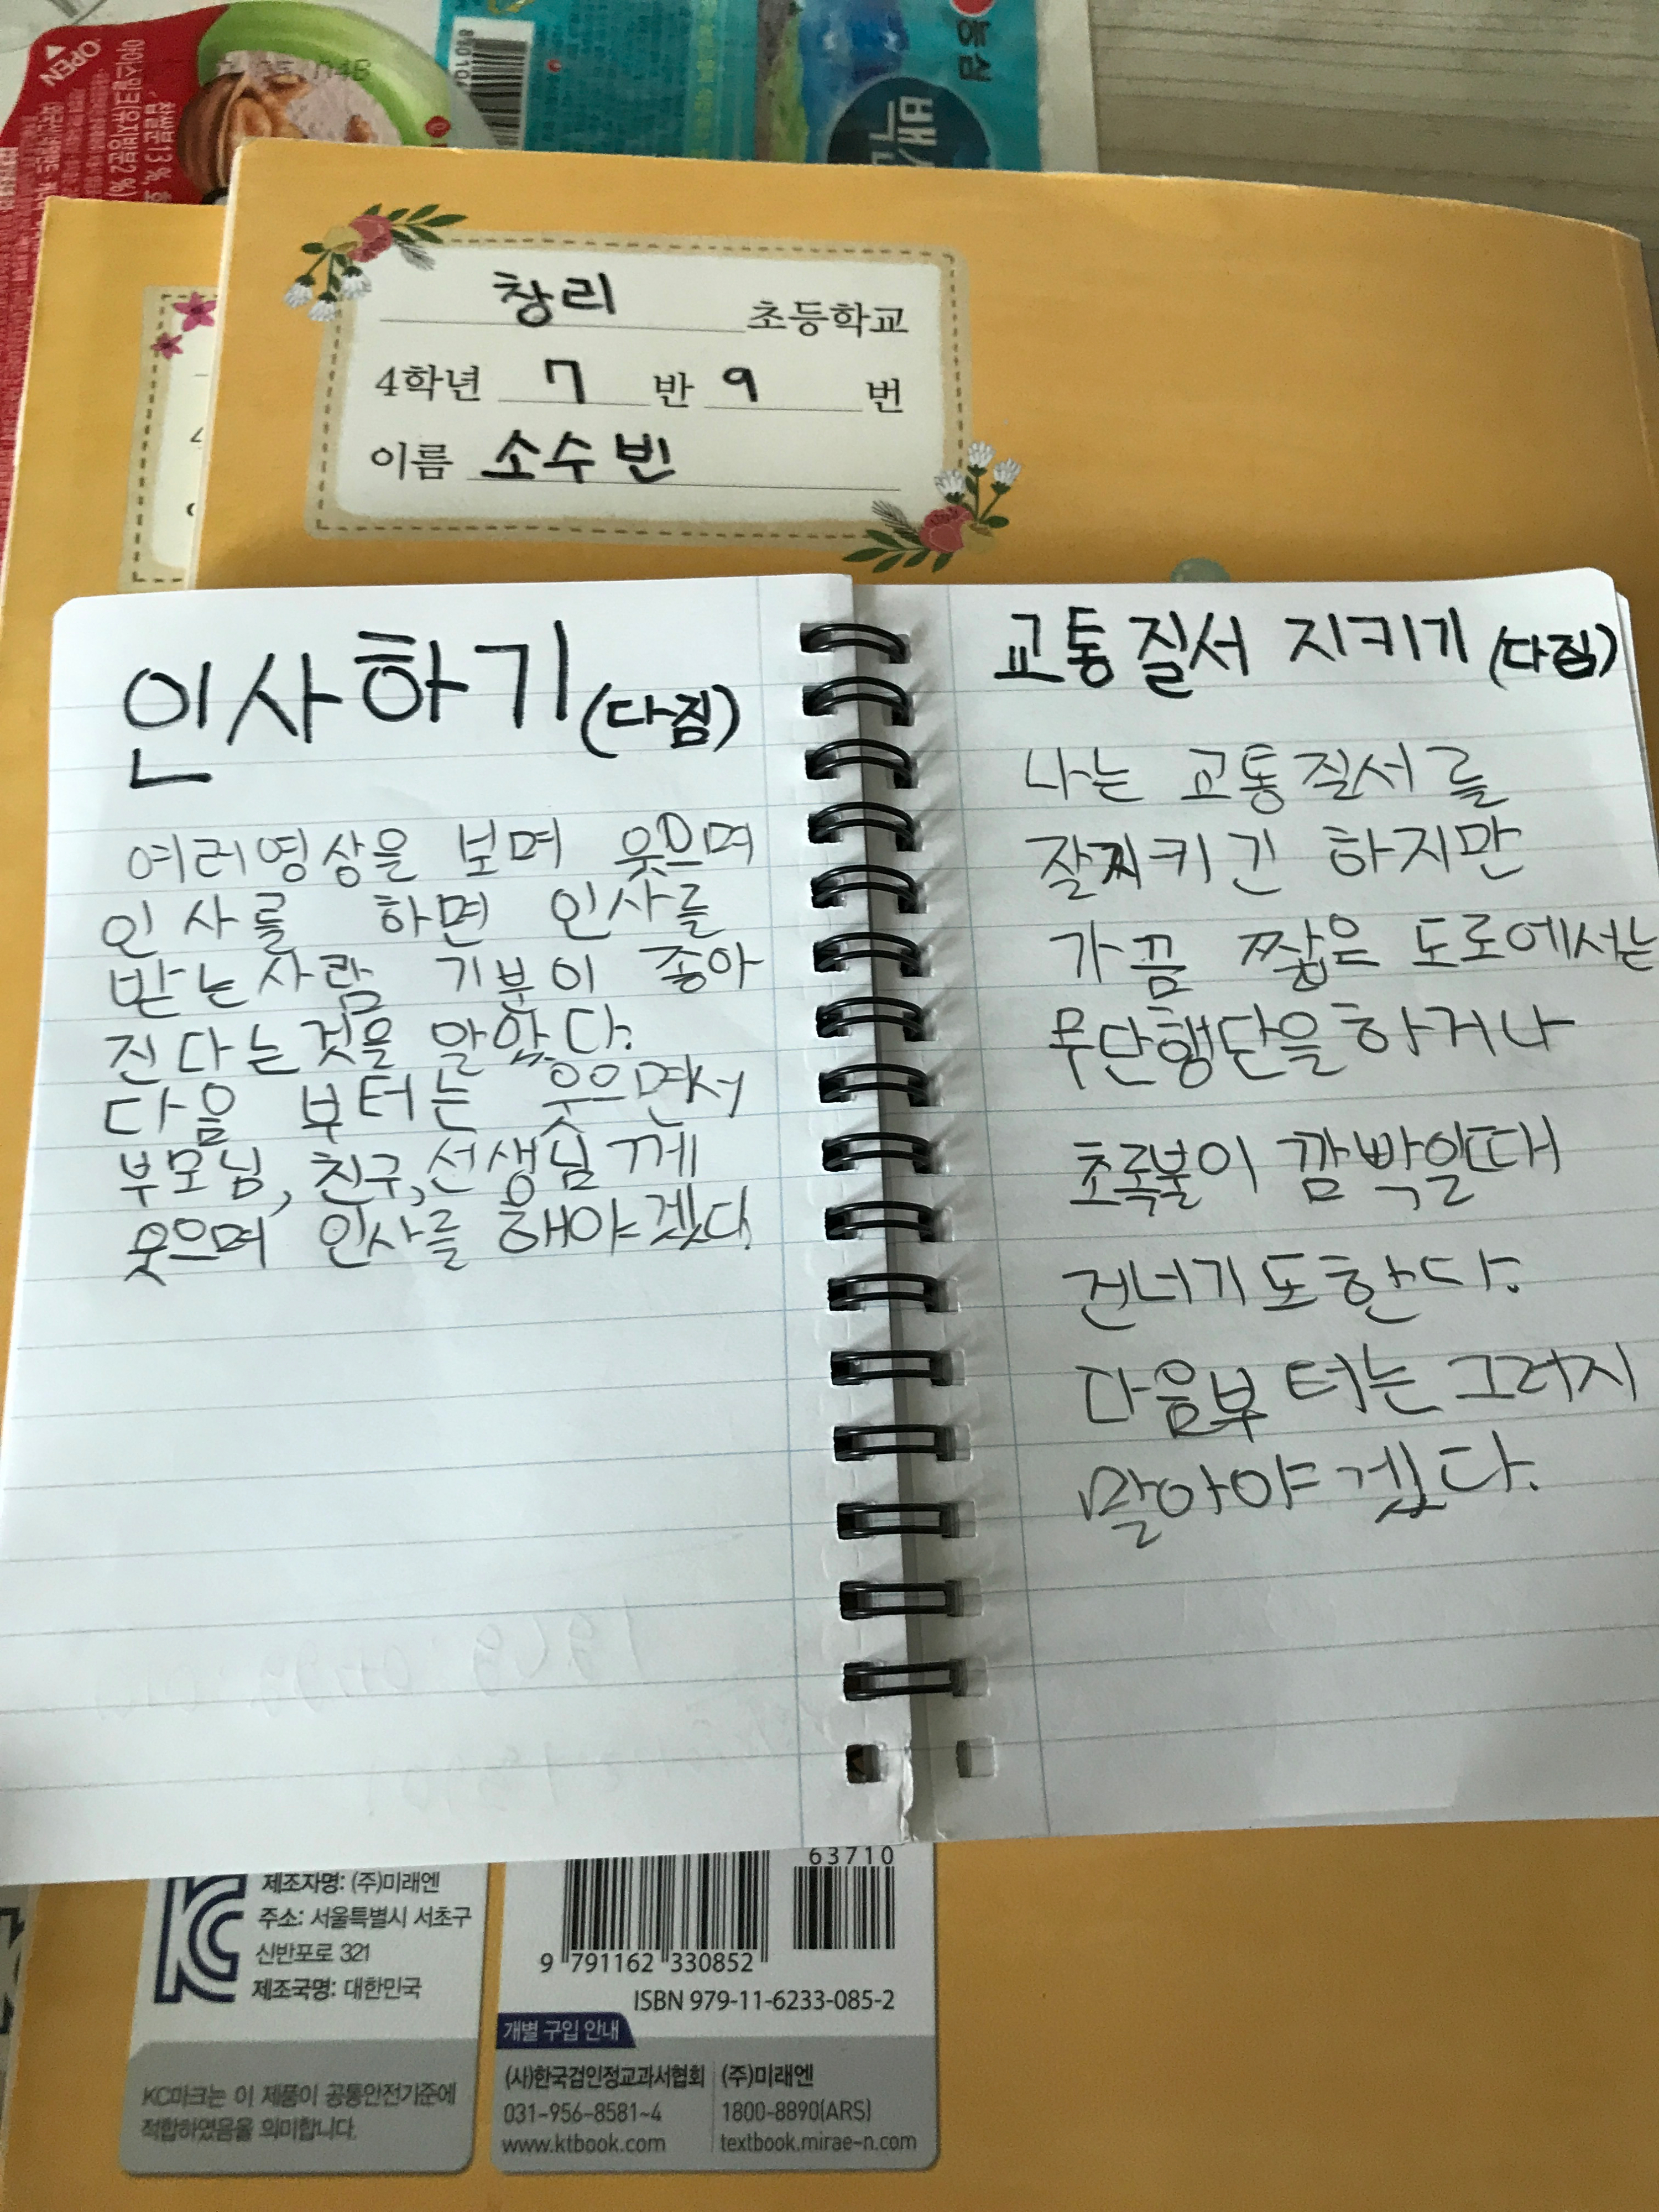 OPEN
농심
창리 초등학교
4학년 7 반 9 번
이름 소수빈
인사하기(다짐)
여러영상을 보며 웃으며
인사를 하면 인사를
받는사람 기분이 좋아
진다는것을 알았다.
다음 부터는 웃으면서
부모님, 친구,선생님께
웃으며 인사를 해야겠다.
교통질서 지키기 (다짐)
나는 교통질서를
잘찌키긴 하지만
가끔 짧은 도로에서는
무단행단을하거나
초록불이 깜박일때
건너기도한다.
다음부터는 그러지
말아야겠다.
제조자명: (주)미래엔
주소: 서울특별시 서초구
신반포로 321
제조국명: 대한민국
KC마크는 이 제품이 공통안전기준에
적합하였음을 의미합니다.
63710
9 791162 330852
ISBN 979-11-6233-085-2
개별 구입 안내
(사)한국검인정교과서협회
031-956-8581~4
www.ktbook.com
(주)미래엔
1800-8890(ARS)
textbook.mirae-n.com